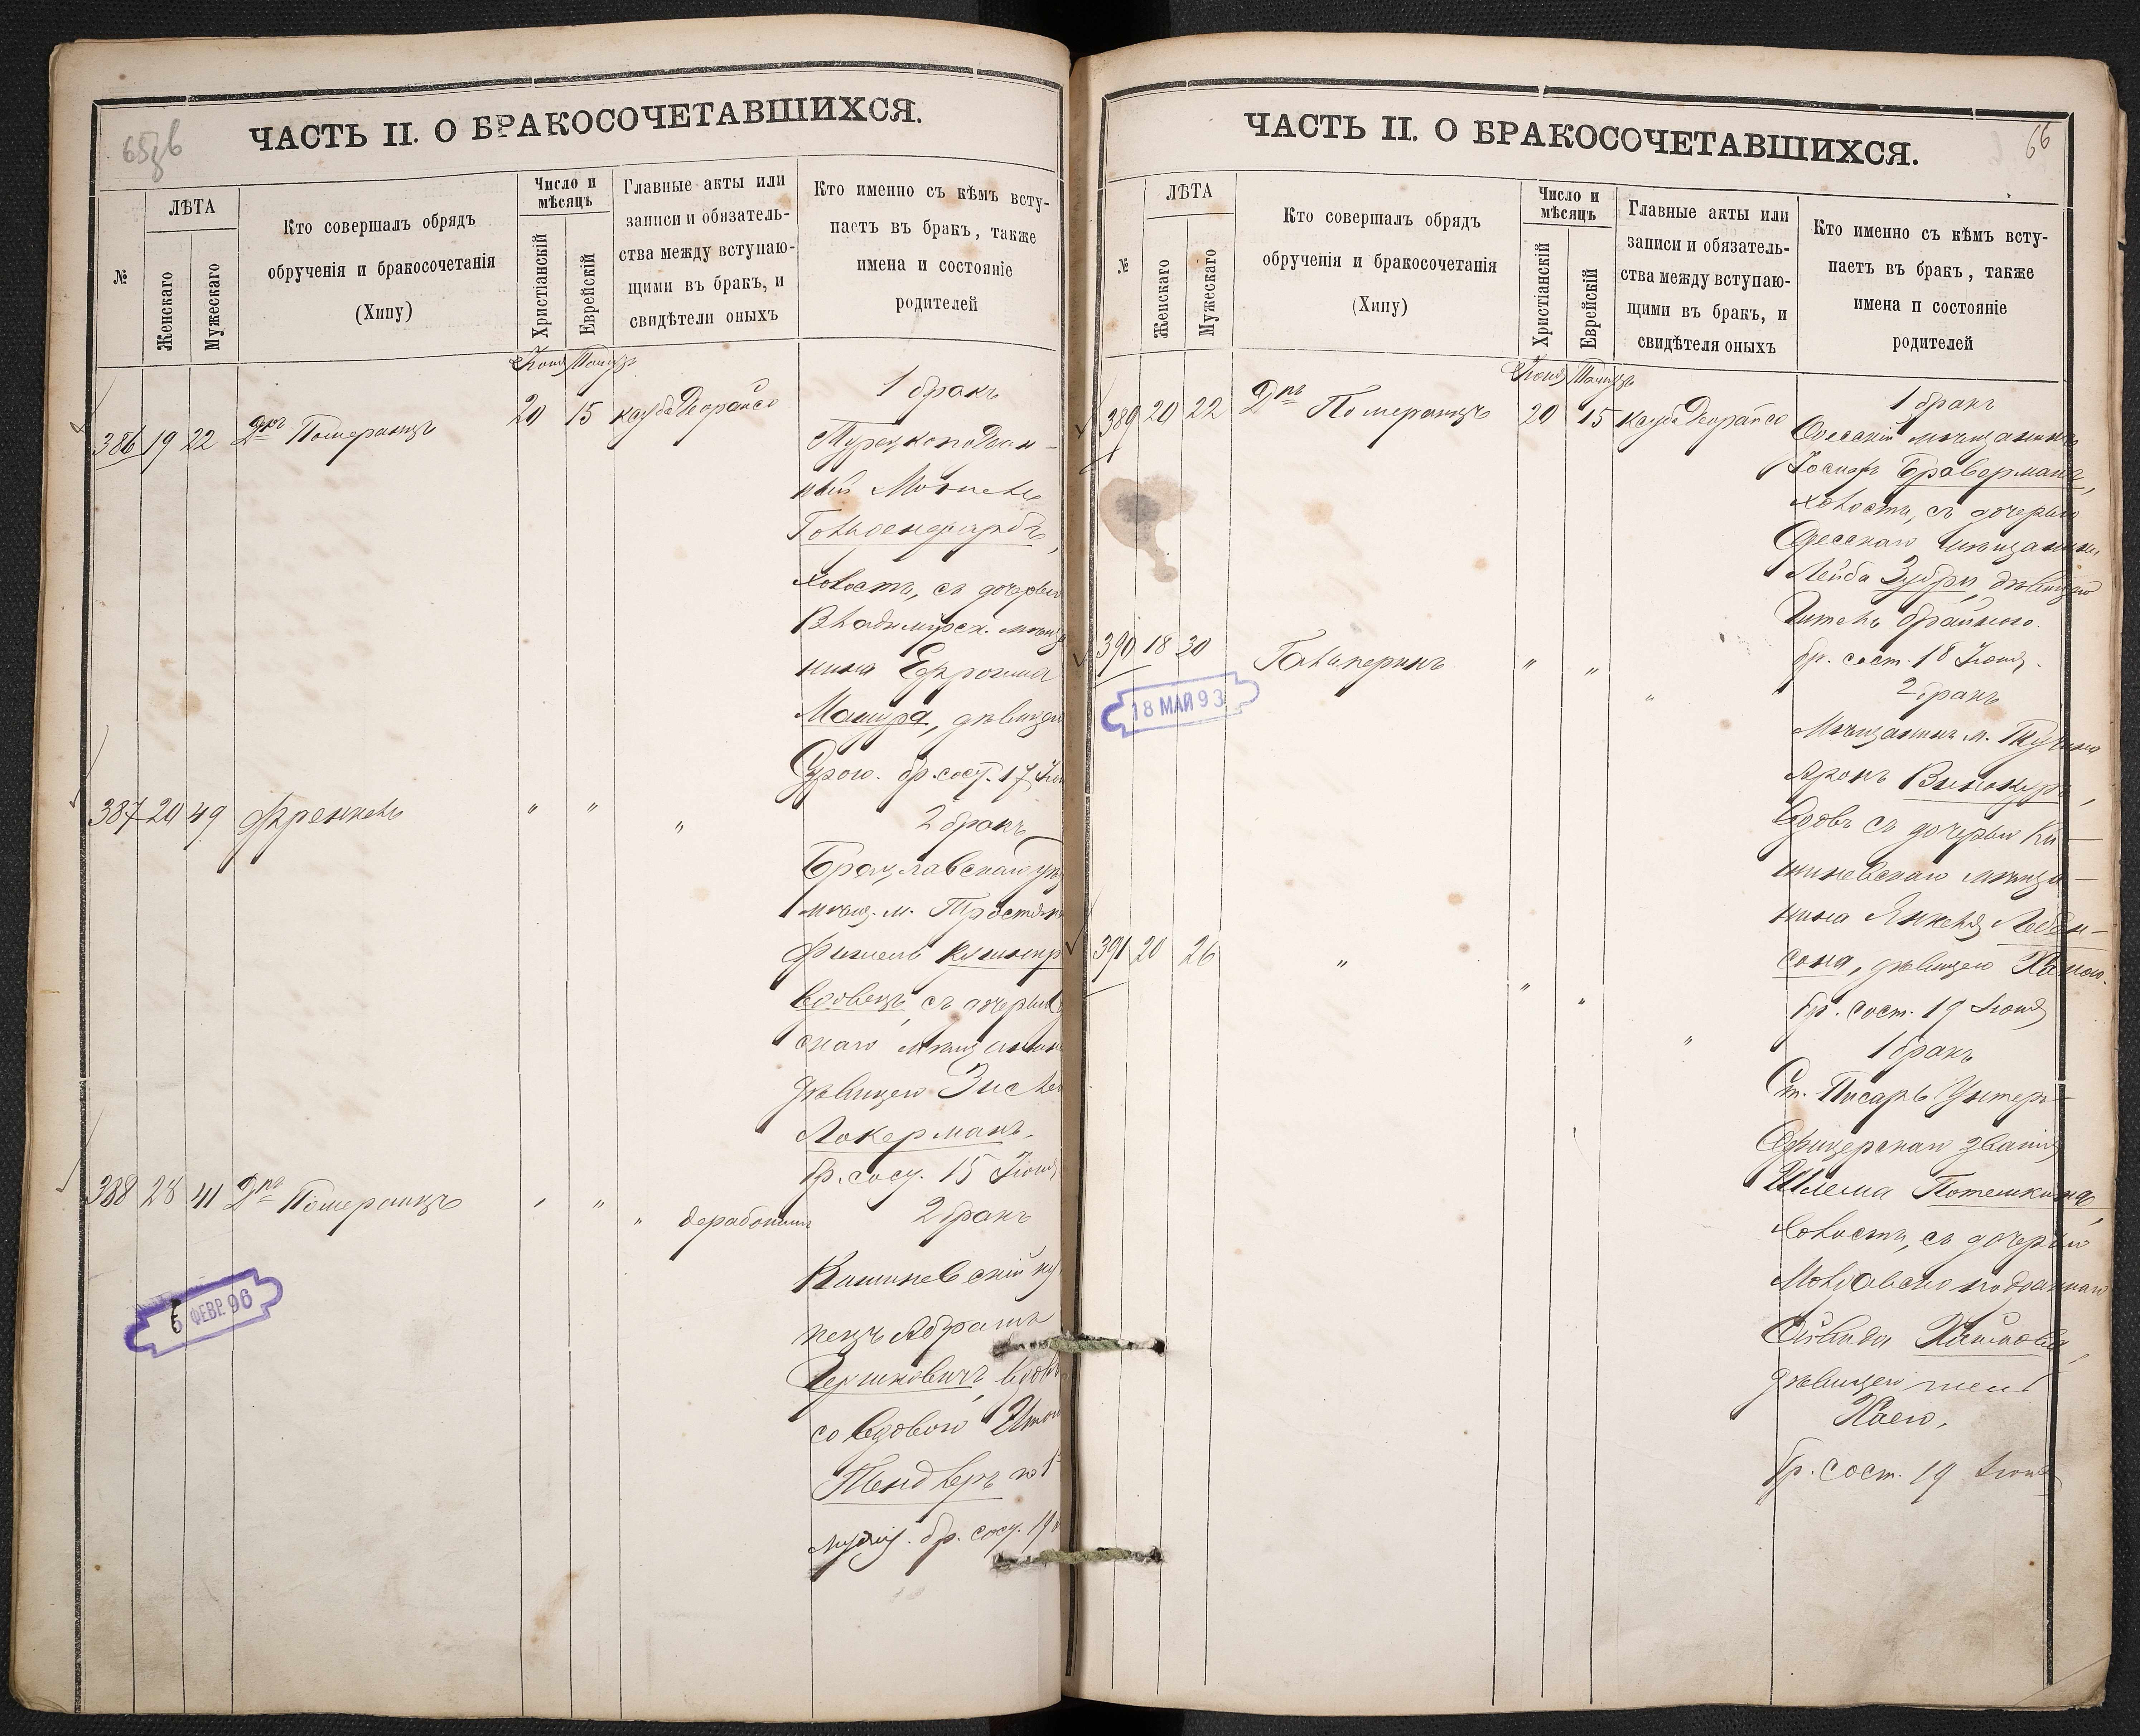 65зв
ЧАСТЬ II. О БРАКОСОЧЕТАВШИХСЯ.
№
ЛѢТА
Женскаго
Мужескаго
Кто совершалъ обрядъ
обрученія и бракосочетанія
(Хипу)
Число и
мѣсяцъ
Христіанскій
Еврейскій
Главные акты или
записи и обязатель-
ства между вступаю-
щими въ бракъ, и
свидѣтели оныхъ
Кто именно съ кѣмъ всту-
паетъ въ бракъ, также
имена и состояніе
родителей
Іюня
386 19 22 Д-ръ Померанцъ 20 15
1 бракъ
Турецкоподдан-
ный
Гольденфарбъ,
холостъ, съ дочерью
Владимірск. мѣщ
нина Ефроима
Машура, дѣвицею
Сурою. бр. сост. 17
387 20 49 Френкель " " "
2 бракъ
Брацлавскаго
мѣщ. м. Тростян
Фишель Кушнир
вдовецъ, съ дочерью
скаго мѣщанина
дѣвицею
Локерманъ.
бр. сост. 15 Іюня
388 28 41 Д-ръ Померанцъ " " "
2 бракъ
Кишиневскій ку
пецъ Абрамъ
Гершковичъ, вдов
со вдовою
бр. сост. 19
6 ФЕВР. 96
66
ЧАСТЬ II. О БРАКОСОЧЕТАВШИХСЯ.
№
ЛѢТА
Женскаго
Мужескаго
Кто совершалъ обрядъ
обрученія и бракосочетанія
(Хипу)
Число и
мѣсяцъ
Христіанскій
Еврейскій
Главные акты или
записи и обязатель-
ства между вступаю-
щими въ бракъ, и
свидѣтеля оныхъ
Кто именно съ кѣмъ всту-
паетъ въ бракъ, также
имена и состояніе
родителей
Іюня
389 20 22 Д-ръ Померанцъ 20 15
1 бракъ
Одесскій мѣщанинъ
Іосифъ Браверманъ,
холостъ, съ дочерью
Одесскаго мѣщанина
Лейба Зубри, дѣвицею
бр. сост. 18 Іюня.
390 18 30 Гальперинъ " " "
18 МАЙ 93
2 бракъ
Мѣщанинъ м.
Аронъ Винокуръ,
вдовъ съ дочерью Ки-
шиневскаго мѣща-
нина Янкеля Лебен-
сона, дѣвицею Ханою.
бр. сост. 19 Іюня
391 20 26 " " " "
1 бракъ
Ст. Писарь Унтеръ-
Офицерскаго званія
Шлема Потешкинъ,
холостъ, съ дочерью
Молдавско подданнаго
дѣвицею
Хаею.
бр. сост. 19 Іюня